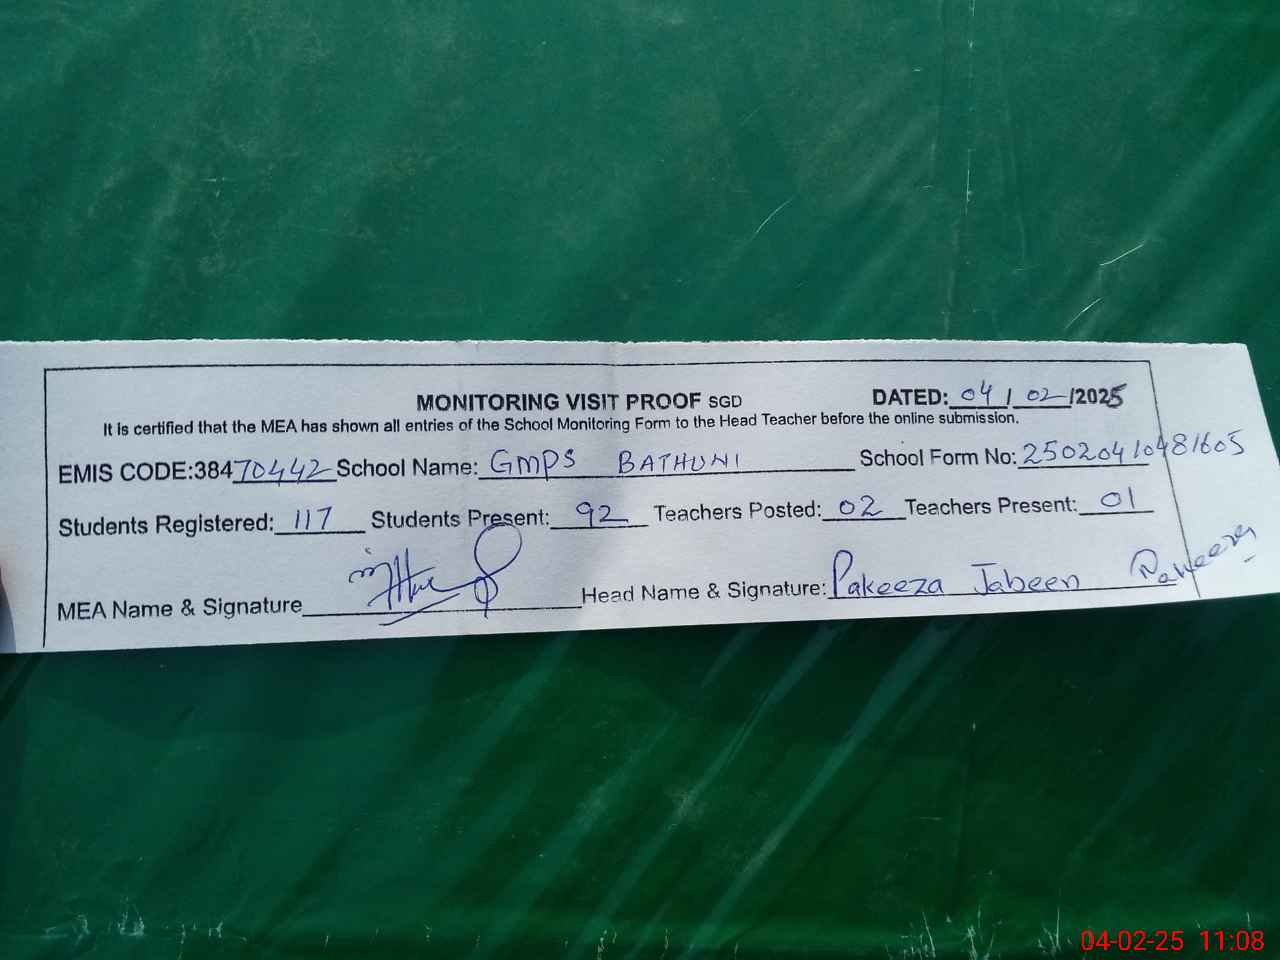 MONITORING VISIT PROOF SGD DATED: 04/02/2025
It is certified that the MEA has shown all entries of the School Monitoring Form to the Head Teacher before the online submission.
EMIS CODE:38470442 School Name: GMPS BATHUNI School Form No: 25020410481605
Students Registered: 117 Students Present: 92 Teachers Posted: 02 Teachers Present: 01
MEA Name & Signature Head Name & Signature: Pakeeza Jabeen
04-02-25 11:08